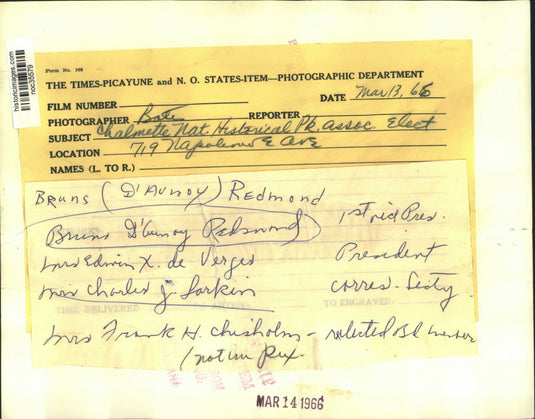 historicimages.com
noc35579
Form No. 308
THE TIMES-PICAYUNE and N. O. STATES-ITEM—PHOTOGRAPHIC DEPARTMENT
FILM NUMBER DATE Mar 13, 66
PHOTOGRAPHER REPORTER
SUBJECT Chalmette Nat. Historical Pk. assoc. Elect
LOCATION 719 Napoleon Ave
NAMES (L. TO R.)
BRUNS (D'AUNOY) REDMOND
Bruns D'Aunoy Redmond 1st vid Pres.
Mrs Edwin X. de Verges President
Mrs Charles J. Larkin corres.
TIME DELIVERED TO ENGRAVER:
Mrs Frank H. Chisholm - Bd member
(not in Pix
MAR 14 1966